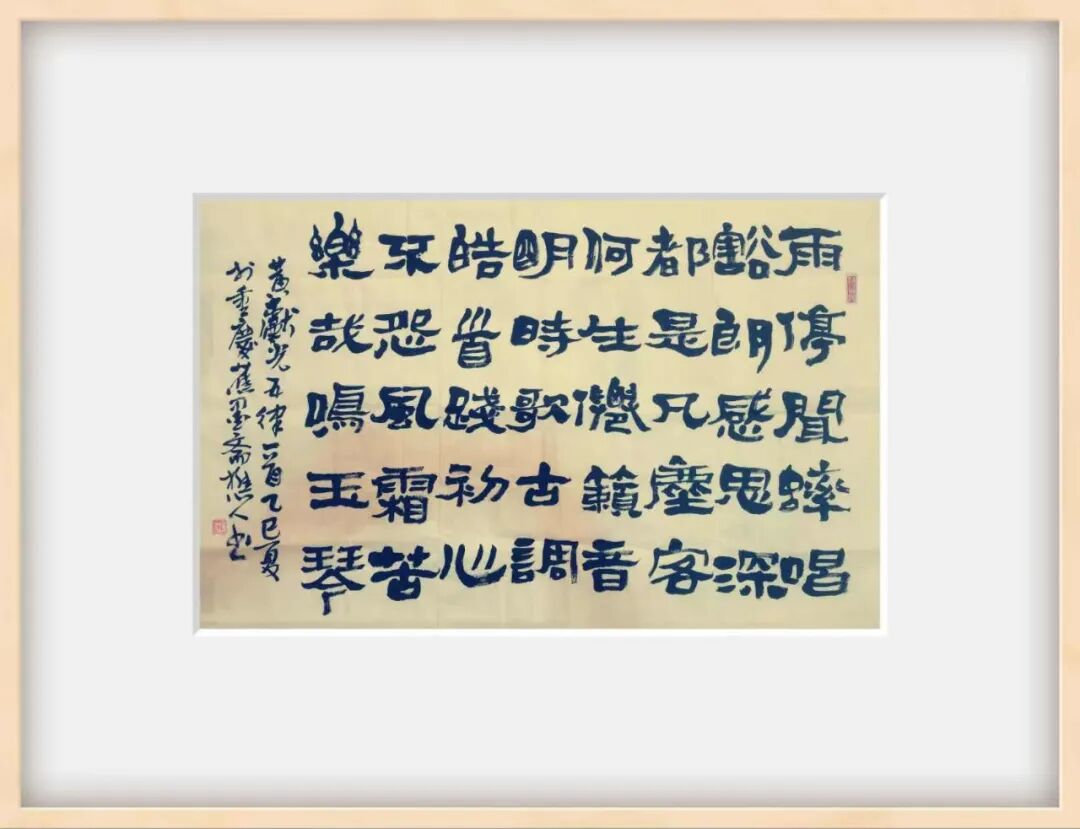 雨停聞蟀唱
豁朗感思深
都是凡塵客
何生僊籟音
明時歌古調
皓首踐初心
不怨風霜苦
樂哉鳴玉琴
黃獻光五律一首乙巳夏
於重慶蕉墨齋樵人書